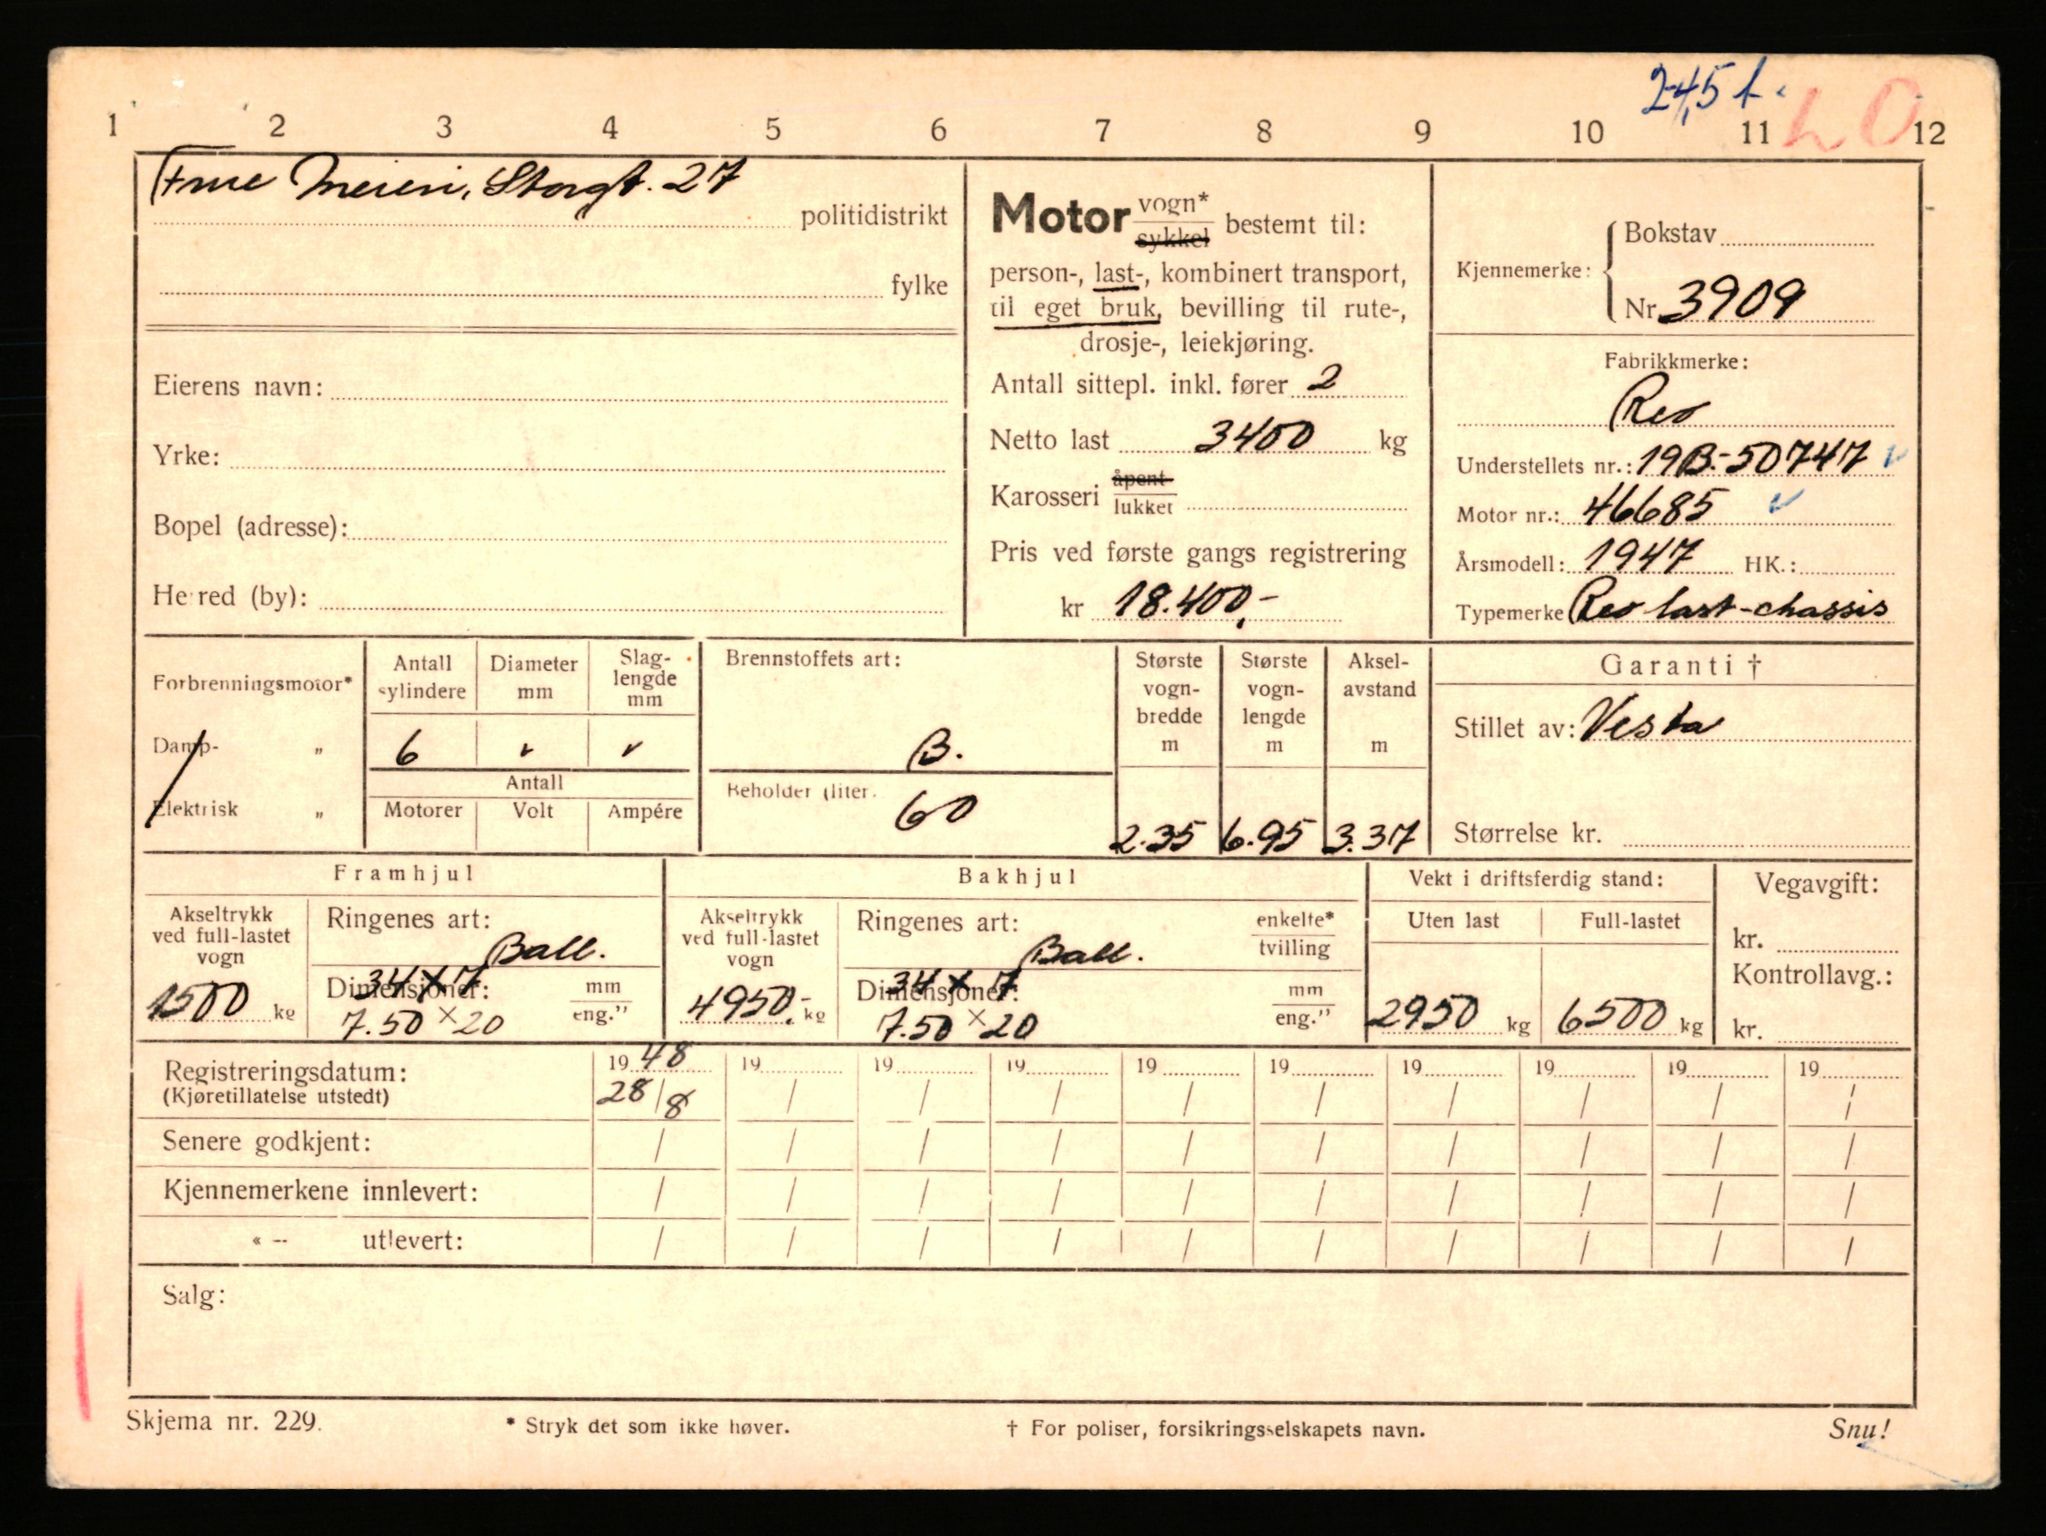 2,45 t.
1 2 3 4 5 6 7 8 9 10 11 12
Meieri, Storgt. 27
politidistrikt
fylke
Eierens navn:
Yrke:
Bopel (adresse):
Herred (by):
Motor vogn* sykkel bestemt til:
person-, last-, kombinert transport,
til eget bruk, bevilling til rute-,
drosje-, leiekjøring.
Antall sittepl. inkl. fører 2
Netto last 3400 kg
Karosseri åpent lukket
Pris ved første gangs registrering
kr 18.400,-
Kjennemerke: Bokstav
Nr 3909
Fabrikkmerke:
Reo
Understellets nr.: 19B-50747
Motor nr.: 46685
Årsmodell: 1947 HK.:
Typemerke Reo last-chassis
Forbrenningsmotor*
Damp- "
Elektrisk "
Antall sylindere
Diameter mm
Slaglengde mm
6
Antall
Motorer Volt Ampére
Brennstoffets art:
B.
Beholder (liter.
60
Største vognbredde m
2.35
Største vognlengde m
6.95
Akselavstand m
3.37
Garanti †
Stillet av: Vesta
Størrelse kr.
Framhjul
Akseltrykk ved full-lastet vogn
1500 kg
Ringenes art:
Ball.
Dimensjoner: 34 x 7
7.50 x 20
mm
eng."
Bakhjul
Akseltrykk ved full-lastet vogn
4950,- kg
Ringenes art: enkelte* tvilling
Ball.
Dimensjoner: 34 x 7
7.50 x 20
mm
eng."
Vekt i driftsferdig stand:
Uten last Full-lastet
2950 kg 6500 kg
Vegavgift:
kr.
Kontrollavg.:
kr.
Registreringsdatum: 19 48 19 19 19 19 19 19 19 19 19
(Kjøretillatelse utstedt) 28/8 / / / / / / / / /
Senere godkjent: / / / / / / / / / /
Kjennemerkene innlevert: / / / / / / / / / /
« -- utlevert: / / / / / / / / / /
Salg:
Skjema nr. 229.
* Stryk det som ikke høver.
† For poliser, forsikringsselskapets navn.
Snu!